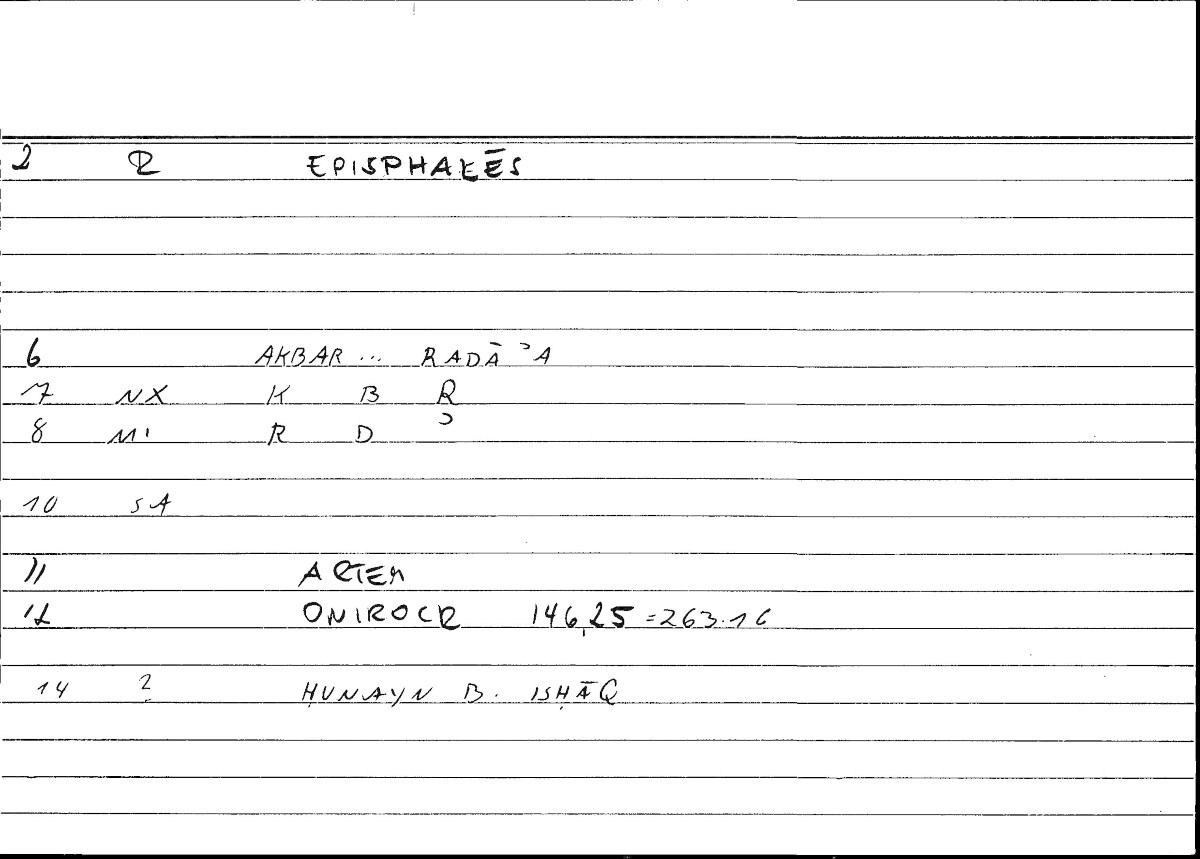 2 R EPISPHALĒS
6 AKBAR ... RADĀʾA
7 NX K B R
8 MI R D ʾ
10 SA
11 ARTEM
12 ONIROCR 146,25 = 263.16
14 2 ḤUNAYN B. ISḤĀQ